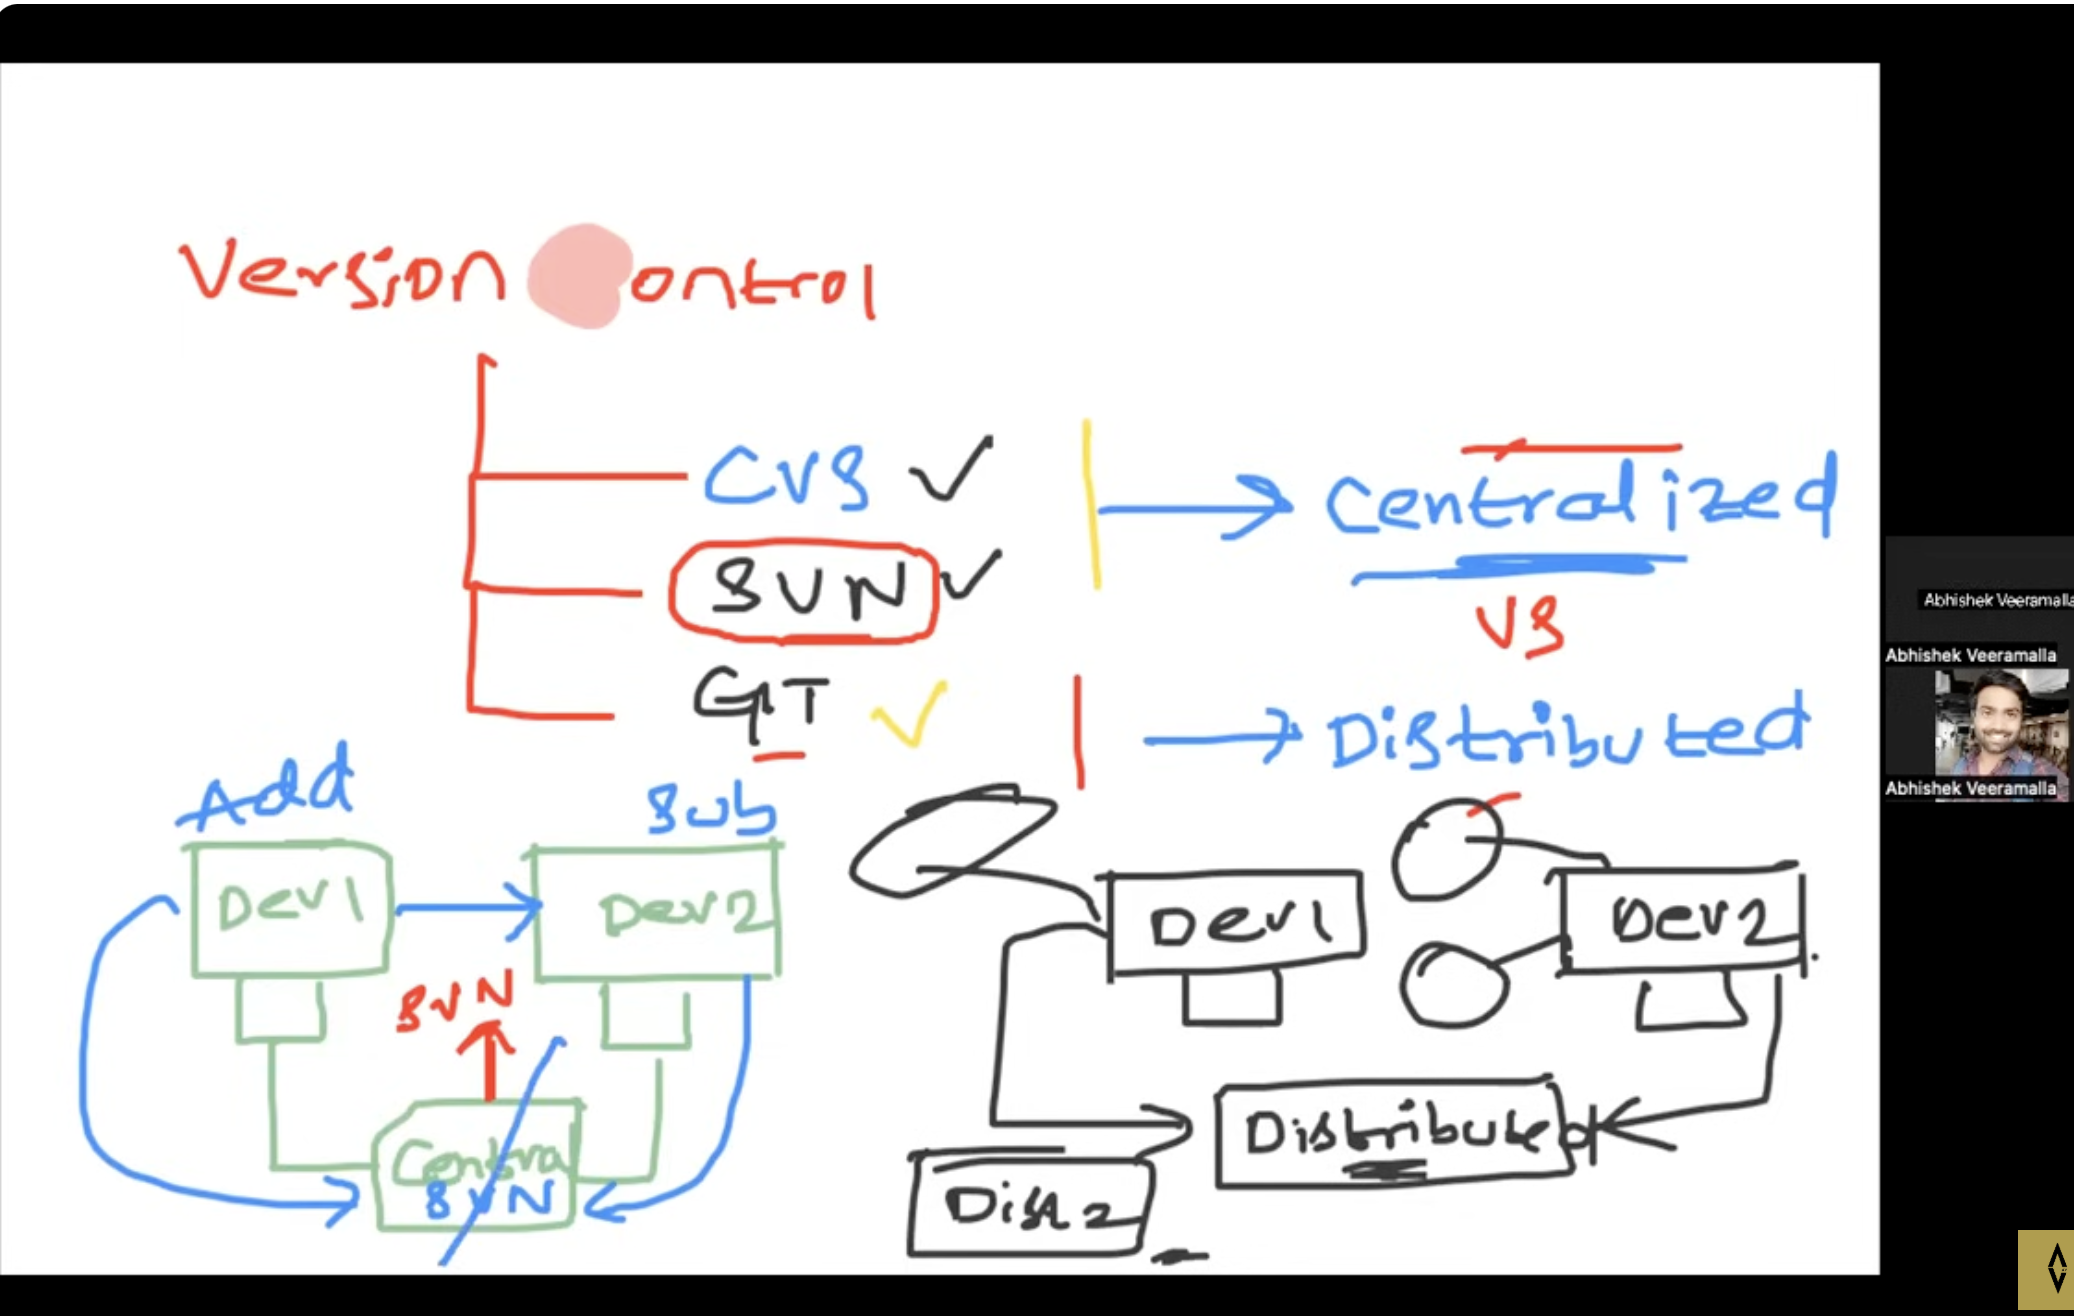 Version Control
CVS
SVN
GIT
Centralized
VS
Distributed
Add
Sub
Dev1
Dev2
SVN
Central
SVN
Dev1
Dev2
Distributed
Dist 2
Abhishek Veeramalla
Abhishek Veeramalla
Abhishek Veeramalla